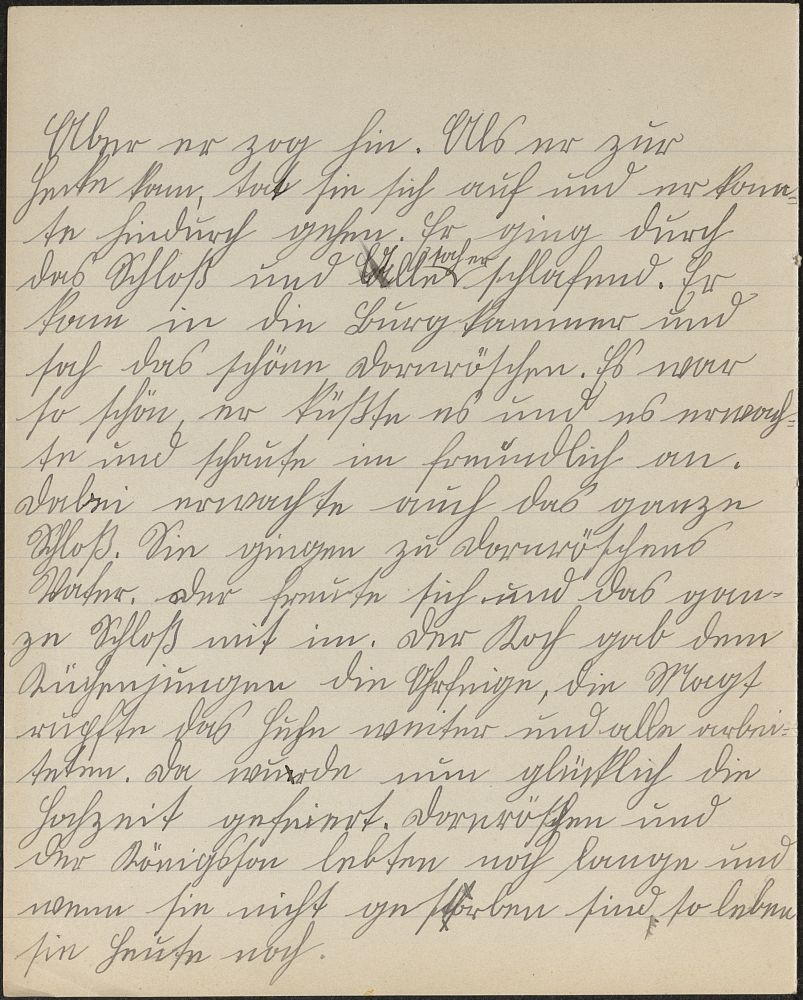 Aber er zog hin. Als er zur
Hecke kam, tat sie sich auf und er konn=
te hindurch gehen. Er ging durch
das Schloß und sah er
alle schlafend. Er
kam in die Burgkammer und
sah das schöne Dornröschen. Es war
so schön, er küßte es und es erwach=
te und schaute im freundlich an.
Dabei erwachte auch das ganze
Schloß. Sie gingen zu Dornröschens
Vater. Der freute sich und das gan=
ze Schloß mit im. Der Koch gab dem
Küchenjungen die Ohrfeige, die Magt
rupfte das Huhn weiter und alle arbei=
teten. Da wurde nun glücklich die
Hochzeit gefeiert. Dornröschen und
der Königsson lebten noch lange und
wenn sie nicht gestorben sind, so leben
sie heute noch.